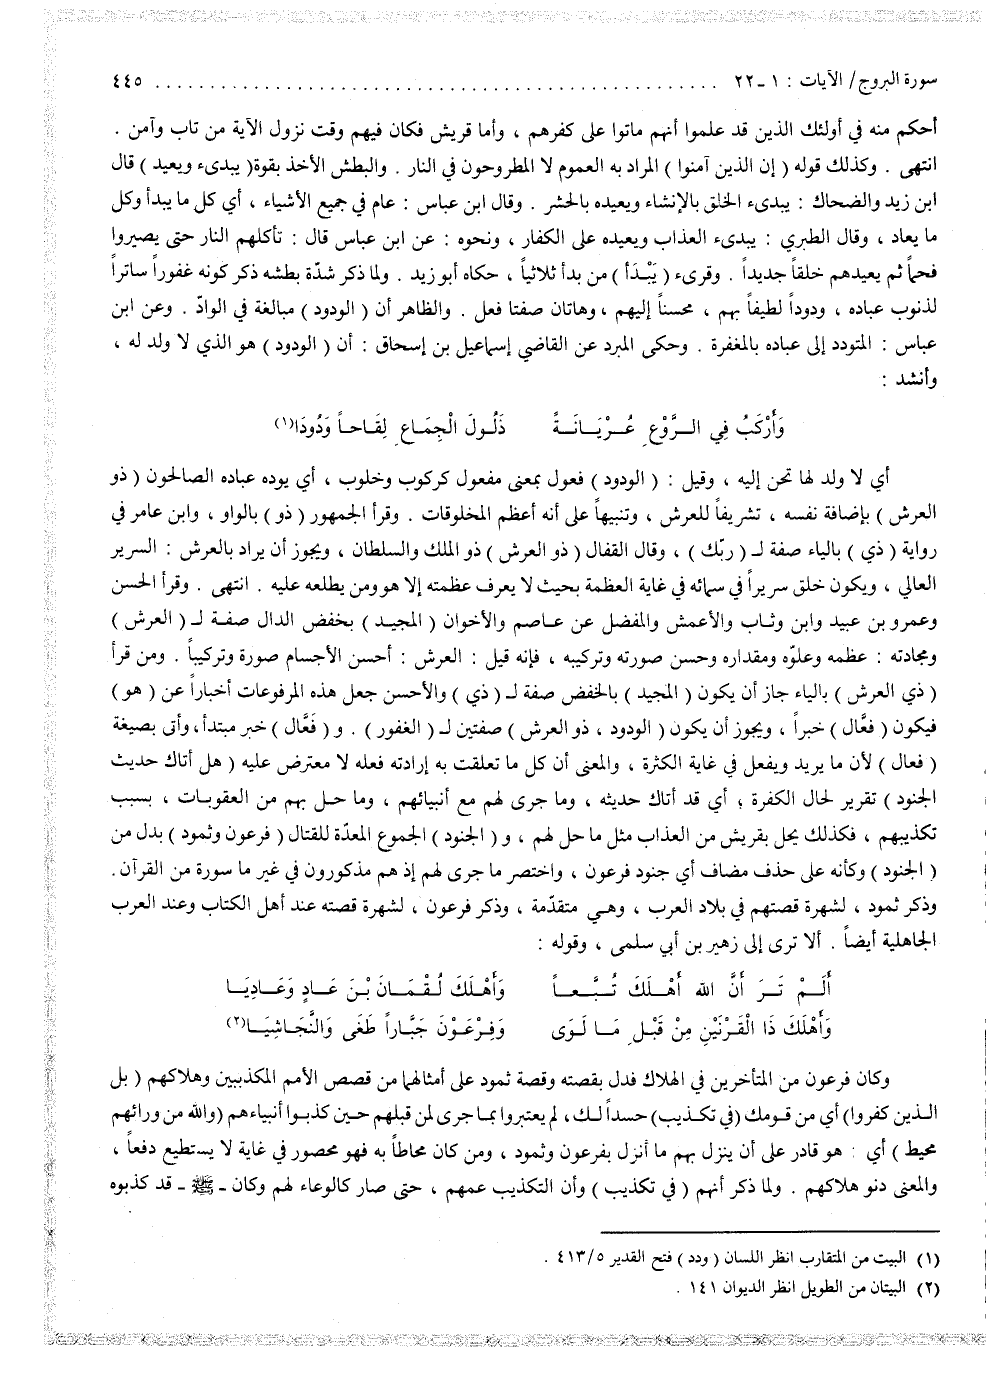 سورة البروج/ الآيات : ١ ـ ٢٢ ................................................ ٤٤٥
أحكم منه في أولئك الذين قد علموا أنهم ماتوا على كفرهم ، وأما قريش فكان فيهم وقت نزول الآية من تاب وآمن .
انتهى . وكذلك قوله ( إن الذين آمنوا ) المراد به العموم لا المطروحون في النار . والبطش الأخذ بقوة( يبدىء ويعيد ) قال
ابن زيد والضحاك : يبدىء الخلق بالإنشاء ويعيده بالحشر . وقال ابن عباس : عام في جميع الأشياء ، أي كل ما يبدأ وكل
ما يعاد ، وقال الطبري : يبدىء العذاب ويعيده على الكفار ، ونحوه : عن ابن عباس قال : تأكلهم النار حتى يصيروا
فحماً ثم يعيدهم خلقاً جديداً . وقرىء ( يَبْدَأ ) من بدأ ثلاثياً ، حكاه أبو زيد . ولما ذكر شدّة بطشه ذكر كونه غفوراً ساتراً
لذنوب عباده ، ودوداً لطيفاً بهم ، محسناً إليهم ، وهاتان صفتا فعل . والظاهر أن ( الودود ) مبالغة في الوادّ . وعن ابن
عباس : المتودد إلى عباده بالمغفرة . وحكى المبرد عن القاضي إسماعيل بن إسحاق : أن ( الودود ) هو الذي لا ولد له ،
وأنشد :
وَأَرْكَبُ فِي الـرَّوْعِ عُـرْيَانَـةً ذَلُـولَ الْجِمَـاعِ لِقَـاحـاً وَدُودَا(١)
أي لا ولد لها تحن إليه ، وقيل : ( الودود ) فعول بمعنى مفعول كركوب وحلوب ، أي يوده عباده الصالحون ( ذو
العرش ) بإضافة نفسه ، تشريفاً للعرش ، وتنبيهاً على أنه أعظم المخلوقات . وقرأ الجمهور ( ذو ) بالواو ، وابن عامر في
رواية ( ذي ) بالياء صفة لـ ( ربّك ) ، وقال القفال ( ذو العرش ) ذو الملك والسلطان ، ويجوز أن يراد بالعرش : السرير
العالي ، ويكون خلق سريراً في سمائه في غاية العظمة بحيث لا يعرف عظمته إلا هو ومن يطلعه عليه . انتهى . وقرأ الحسن
وعمرو بن عبيد وابن وثـاب والأعمش والمفضل عن عـاصم والأخوان ( المجيـد ) بخفض الدال صفـة لـ ( العرش )
ومجادته : عظمه وعلوّه ومقداره وحسن صورته وتركيبه ، فإنه قيل : العرش : أحسن الأجسام صورة وتركيباً . ومن قرأ
( ذي العرش ) بالياء جاز أن يكون ( المجيد ) بالخفض صفة لـ ( ذي ) والأحسن جعل هذه المرفوعات أخباراً عن ( هو )
فيكون ( فعَّال ) خبراً ، ويجوز أن يكون ( الودود ، ذو العرش ) صفتين لـ ( الغفور ) . و ( فَعَّال ) خبر مبتدأ، وأتى بصيغة
( فعال ) لأن ما يريد ويفعل في غاية الكثرة ، والمعنى أن كل ما تعلقت به إرادته فعله لا معترض عليه ( هل أتاك حديث
الجنود ) تقرير لحال الكفرة ؛ أي قد أتاك حديثه ، وما جرى لهم مع أنبيائهم ، وما حـل بهم من العقوبـات ، بسبب
تكذيبهم ، فكذلك يحل بقريش من العذاب مثل ما حل لهم ، و ( الجنود ) الجموع المعدّة للقتال ( فرعون وثمود ) بدل من
( الجنود ) وكأنه على حذف مضاف أي جنود فرعون ، واختصر ما جرى لهم إذ هم مذكورون في غير ما سورة من القرآن .
وذكر ثمود ، لشهرة قصتهم في بلاد العرب ، وهـي متقدّمة ، وذكر فرعون ، لشهرة قصته عند أهل الكتاب وعند العرب
الجاهلية أيضاً . ألا ترى إلى زهير بن أبي سلمى ، وقوله :
أَلَـمْ تَـرَ أَنَّ الله أَهْـلَكَ تُـبَّـعـاً وَأَهْـلَكَ لُـقْـمَـانَ بْـنَ عَـادٍ وَعَـادِيَـا
وَأَهْلَكَ ذَا الْقَرْنَيْنِ مِنْ قَبْلِ مَـا لَـوَى وَفِـرْعَـوْنَ جَبَّـاراً طَغَى وَالنَّجَاشِيَـا(٢)
وكان فرعون من المتأخرين في الهلاك فدل بقصته وقصة ثمود على أمثالهما من قصص الأمم المكذبين وهلاكهم ( بل
الـذين كفروا) أي من قـومك (في تكـذيب) حسداً لـك، لم يعتبروا بمـا جرى لمن قبلهم حـين كذبـوا أنبياءهم (والله من ورائهم
محيط ) أي : هو قادر على أن ينزل بهم ما أنزل بفرعون وثمود ، ومن كان محاطاً به فهو محصور في غاية لا يستطيع دفعاً ،
والمعنى دنو هلاكهم . ولما ذكر أنهم ( في تكذيب ) وأن التكذيب عمهم ، حتى صار كالوعاء لهم وكان ـ ﷺ ـ قد كذبوه
(١) البيت من المتقارب انظر اللسان ( ودد ) فتح القدير ٤١٣/٥ .
(٢) البيتان من الطويل انظر الديوان ١٤١ .